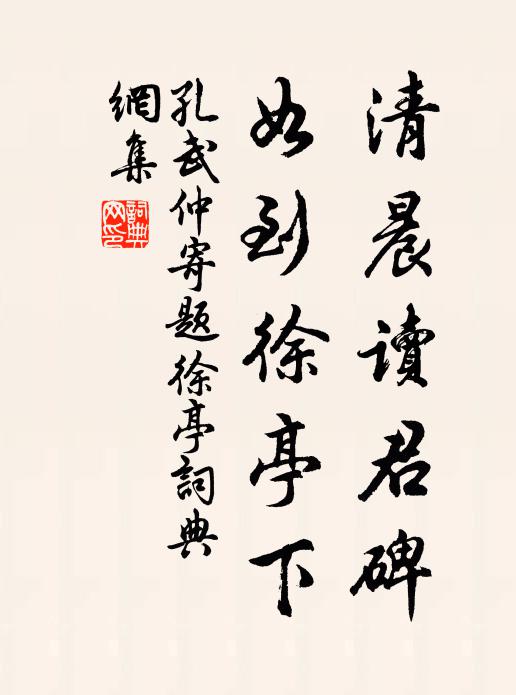 清晨讀君碑
如到徐亭下
孔武仲寄題徐亭詞典
網集
詞典網印